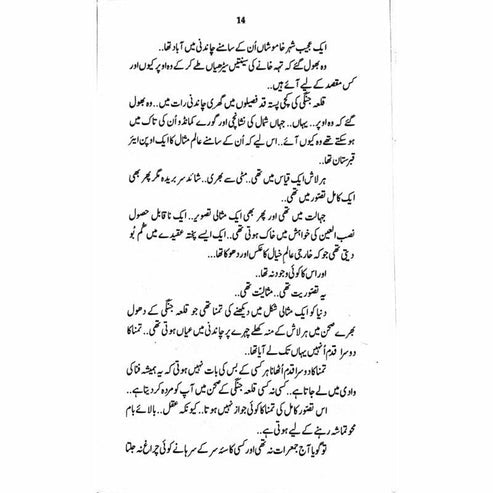 14
ایک عجیب شہر خاموشاں اُن کے سامنے چاندنی میں آباد تھا..
وہ بھول گئے کہ تہہ خانے کی سینتیس سیڑھیاں طے کر کے وہ اوپر کیوں اور
کس مقصد کے لیے آئے ہیں..
قلعہ جنگی کی کچی پستہ قد فصیلوں میں گھری چاندنی رات میں.. وہ بھول
گئے کہ وہ اوپر.. یہاں.. جہاں شمال کی نشانچی اور گورے کمانڈو اُن کی تاک میں
ہو سکتے تھے وہ کیوں آئے.. اس لیے کہ اُن کے سامنے عالم مثال کا ایک اوپن ایئر
قبرستان تھا..
ہر لاش ایک قیاس میں تھی.. مٹی سے بھری.. شائد سر بریدہ مگر پھر بھی
ایک کامل تصور میں تھی..
جہالت میں تھی اور پھر بھی ایک مثالی تصویر.. ایک ناقابل حصول
نصب العین کی خواہش میں خاک ہوتی تھی.. ایک ایسے پختہ عقیدے میں گم بُو
دیتی تھی جو کہ خارجی عالم خیال کا عکس اور دھوکا تھا...
اور اس کا کوئی وجود نہ تھا..
یہ تصوریت تھی.. مثالیت تھی..
دنیا کو ایک مثالی شکل میں دیکھنے کی تمنا تھی جو قلعہ جنگی کے دھول
بھرے صحن میں ہر لاش کے منہ کھلے چہرے پر چاندنی میں عیاں ہوتی تھی.. تمنا کا
دوسرا قدم اُنہیں یہاں تک لے آیا تھا..
تمنا کا دوسرا قدم اُٹھانا ہر کسی کے بس کی بات نہیں ہوتی کہ یہ ہمیشہ فنا کی
وادی میں لے جاتا ہے.. کسی نہ کسی قلعہ جنگی کے صحن میں آپ کو مردہ کر دیتا ہے..
اس تصور کامل کی تمنا کا کوئی جواز نہیں ہوتا.. کیونکہ عقل.. بالائے بام
محو تماشہ رہنے کے لیے ہوتی ہے..
تو گویا آج جمعرات نہ تھی اور کسی کاسۂ سر کے سرہانے کوئی چراغ نہ جلتا